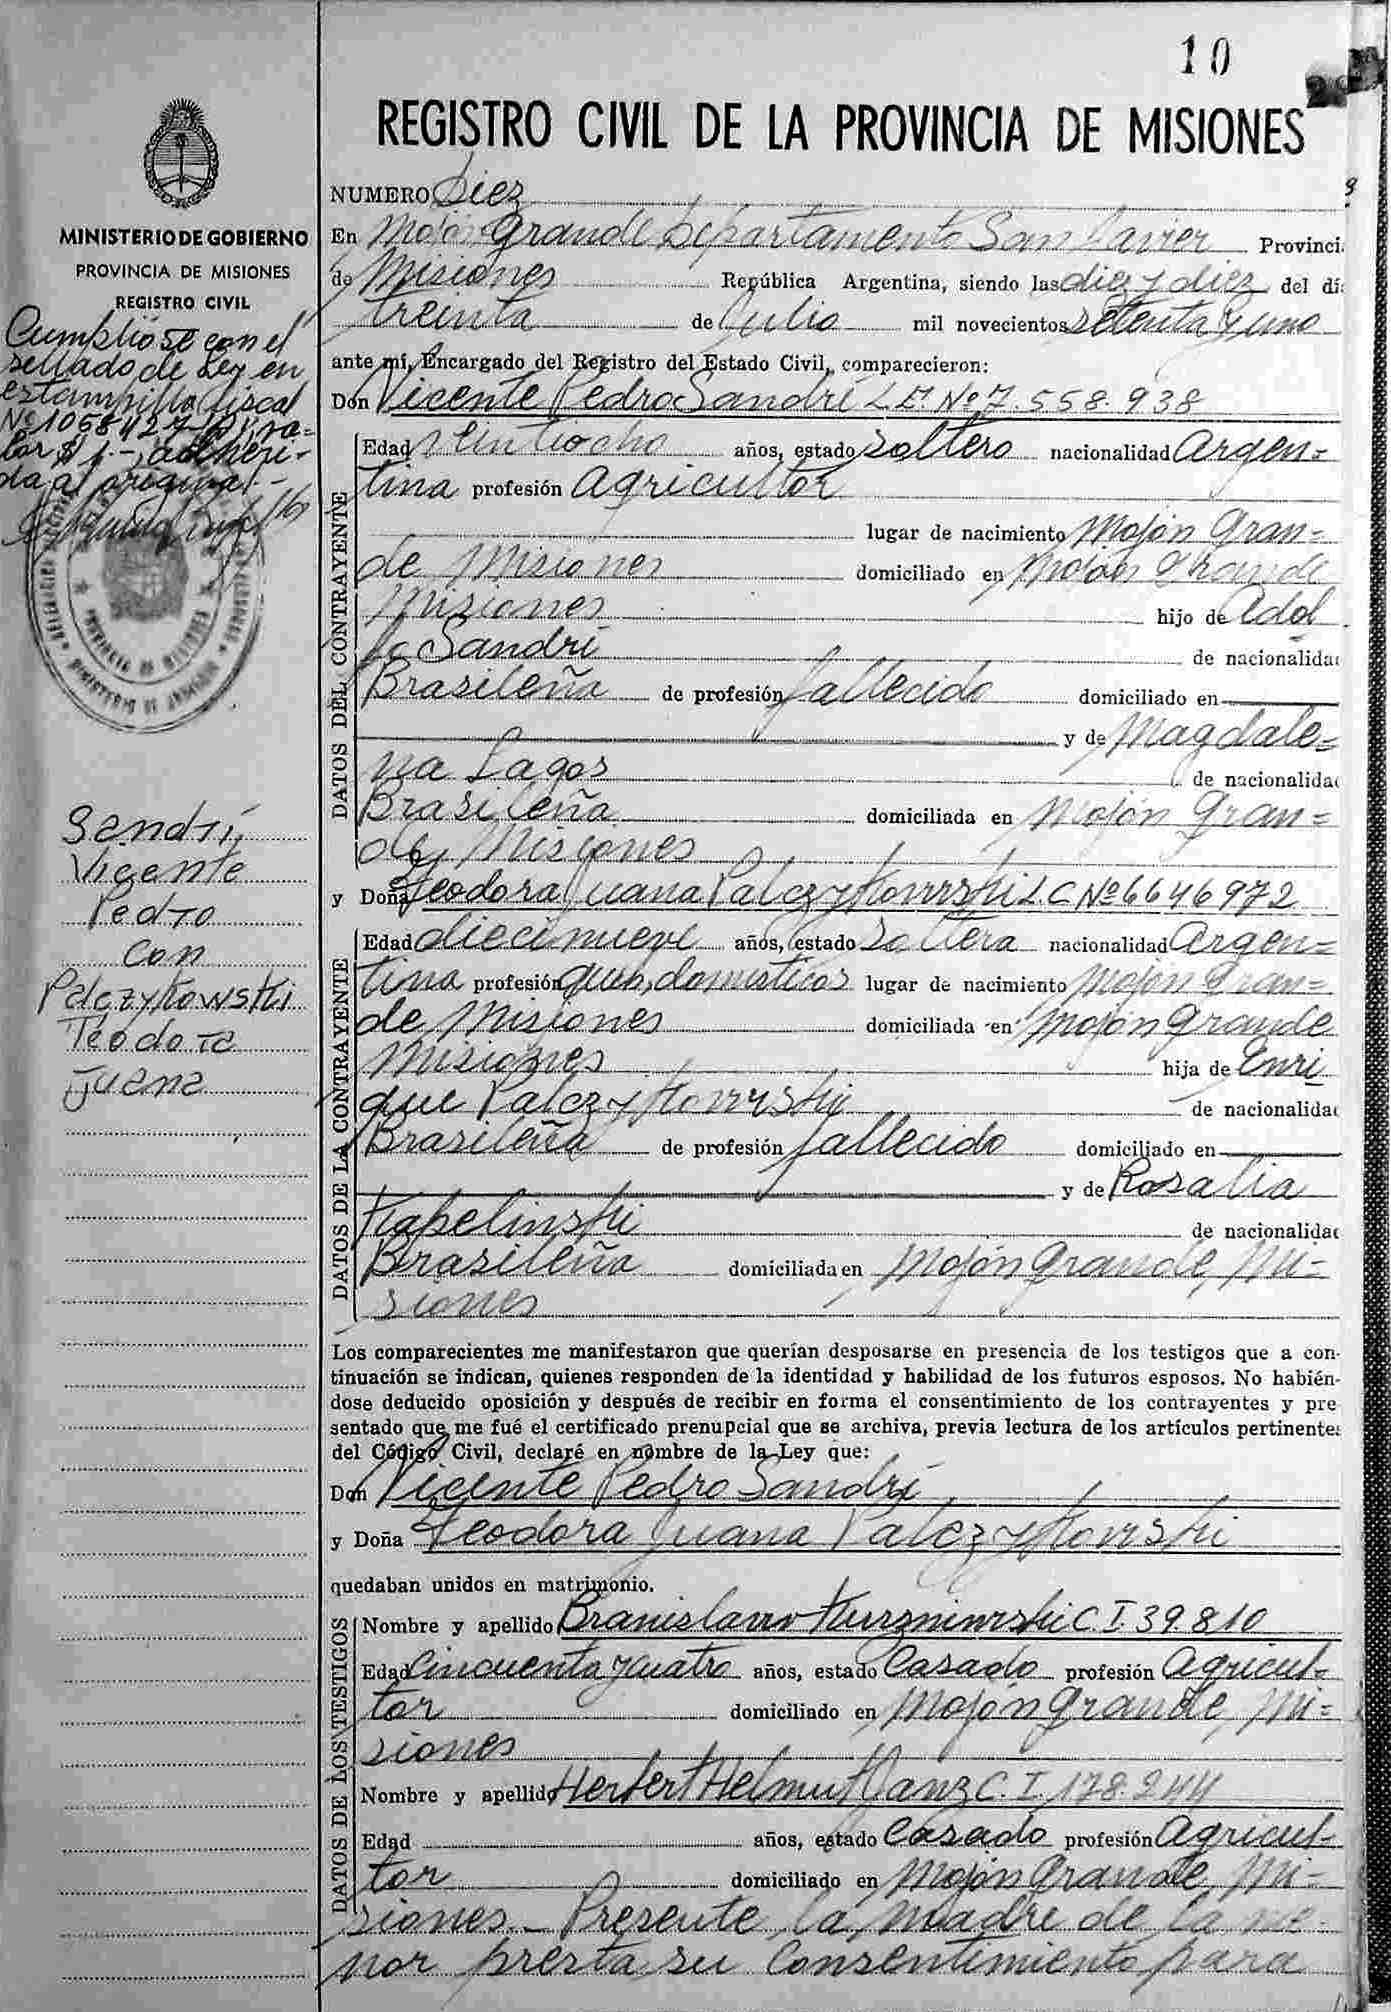 10
REGISTRO CIVIL DE LA PROVINCIA DE MISIONES
MINISTERIO DE GOBIERNO
PROVINCIA DE MISIONES
REGISTRO CIVIL
Cumplióse con el
sellado de Ley en
estampilla fiscal
Nº 1058427
lar $ 1.- adheri-
da al original.-
Sandri,
Vicente
Pedro
con
Palczykowski
Teodora
Juana
NUMERO Diez
En Mojón Grande Departamento San Javier Provinci
de Misiones República Argentina, siendo las diez y diez del di
treinta de Julio mil novecientos setenta y uno
ante mí, Encargado del Registro del Estado Civil, comparecieron:
Don Vicente Pedro Sandri L.E. Nº 7.558.938
DATOS DEL CONTRAYENTE
Edad veintiocho años, estado soltero nacionalidad Argen=
tina profesión agricultor
lugar de nacimiento Mojón Gran=
de Misiones domiciliado en Mojón Grande
Misiones hijo de Adol
fo Sandri de nacionalidad
Brasileña de profesión fallecido domiciliado en
y de Magdale=
na Lagos de nacionalidad
Brasileña domiciliada en Mojón Gran=
de, Misiones
y Doña Teodora Juana Palczykowski L.C Nº 6646972
DATOS DE LA CONTRAYENTE
Edad diecinueve años, estado soltera nacionalidad Argen=
tina profesión queh, domesticos lugar de nacimiento Mojón Gran=
de Misiones domiciliada en Mojón Grande
Misiones hija de Enri
que Palczykowski de nacionalidad
Brasileña de profesión fallecido domiciliado en
y de Rosalia
Kapelinski de nacionalidad
Brasileña domiciliada en Mojón Grande, Mi=
siones
Los comparecientes me manifestaron que querían desposarse en presencia de los testigos que a con-
tinuación se indican, quienes responden de la identidad y habilidad de los futuros esposos. No habién-
dose deducido oposición y después de recibir en forma el consentimiento de los contrayentes y pre
sentado que me fué el certificado prenupcial que se archiva, previa lectura de los artículos pertinentes
del Código Civil, declaré en nombre de la Ley que:
Don Vicente Pedro Sandri
y Doña Teodora Juana Palczykowski
quedaban unidos en matrimonio.
DATOS DE LOS TESTIGOS
Nombre y apellido Branislawo Kurzniewski C.I. 39.810
Edad Cincuenta y cuatro años, estado Casado profesión Agricul-
tor domiciliado en Mojón Grande, Mi=
siones
Nombre y apellido Herbert Helmut Vanz C.I. 178.244
Edad años, estado Casado profesión Agricul-
tor domiciliado en Mojón Grande, Mi=
siones.- Presente la madre de la me-
nor presta su consentimiento para